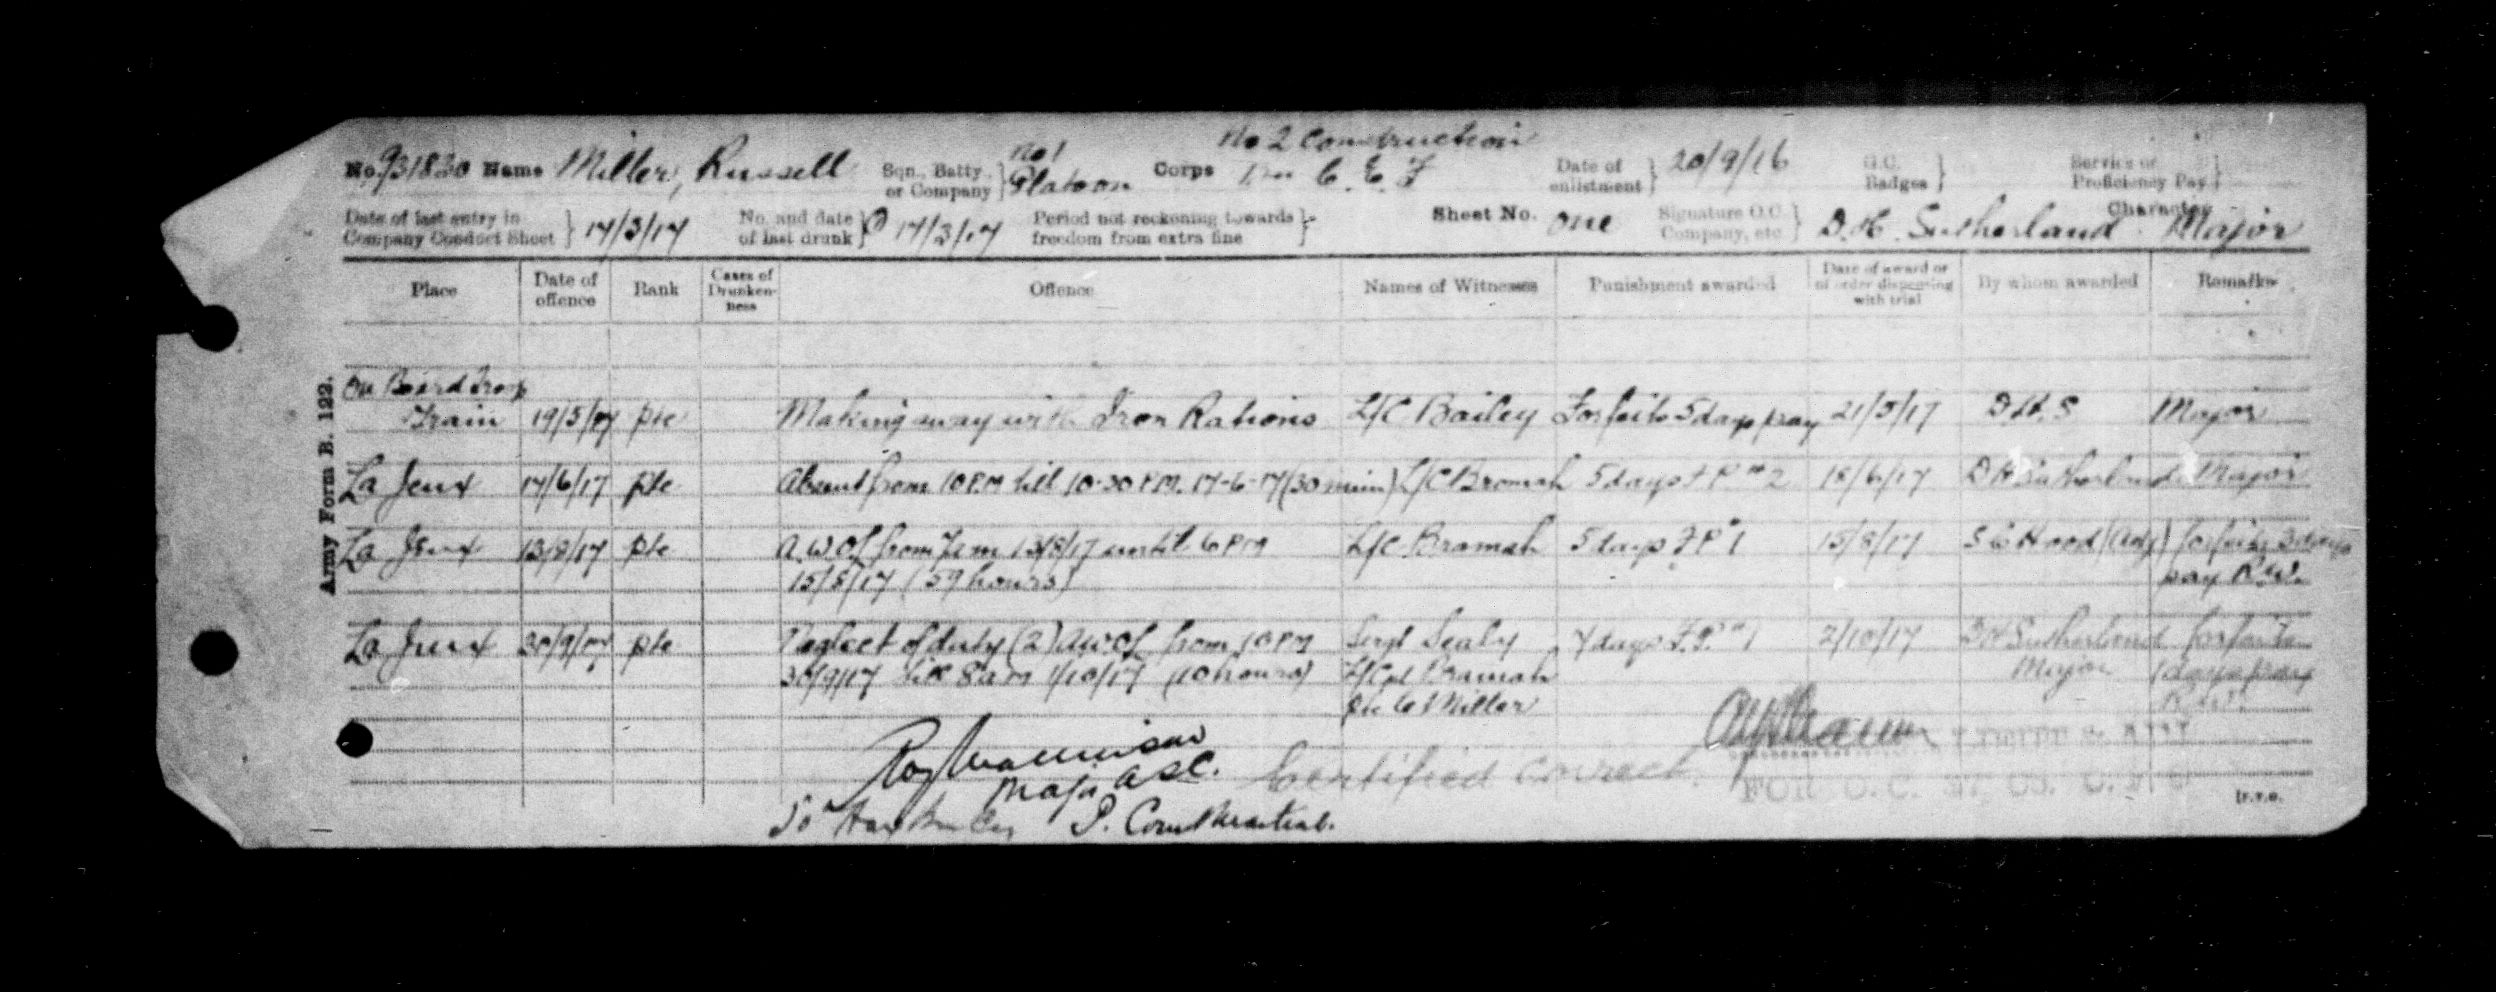 No 2 Construction
No. 931830 Name Miller, Russell Sqn., Batty. or Company } No 1 Platoon Corps Bn C. E. F Date of enlistment } 20/9/16 G.C. Badges } Service or Proficiency Pay }
Date of last entry in Company Conduct Sheet } 17/3/17 No. and date of last drunk } 17/3/17 Period not reckoning towards freedom from extra fine } Sheet No. one Signature O.C. Company, etc. } D.H. Sutherland Major Character
Place Date of offence Rank Cases of Drunkenness Offence Names of Witnesses Punishment awarded Date of award or of order dispensing with trial By whom awarded Remarks
Army Form B. 122.
On Board Troop
Train 19/5/17 pte Making away with Iron Rations L/C Bailey Forfeits 5 days pay 21/5/17 D.H.S Major
La Jeux 17/6/17 pte Absent from 10 P.M till 10-30 P.M. 17-6-17 (30 min) L/C Bramah 5 days F P No 2 18/6/17 D H Sutherland Major
La Jeux 13/8/17 pte A.W.O.L from 7 am 13/8/17 until 6 PM L/C Bramah 5 days F P No 1 15/8/17 S C Hood (Adj) forfeits 3 days
15/8/17 (59 hours) pay R.W.
La Jeux 30/9/17 pte Neglect of duty (2) A.W.O.L from 10 PM Sergt Sealy 7 days F.P. No 1 2/10/17 D H Sutherland forfeits
30/9/17 till 8 am 1/10/17 (10 hours) L/Cpl Bramah Major 1 days pay
Pte C Miller R.W.
Major ASC. Certified Correct LIEUT & ADJ
P. Court Martial. FOR O.C.
[P.T.O.